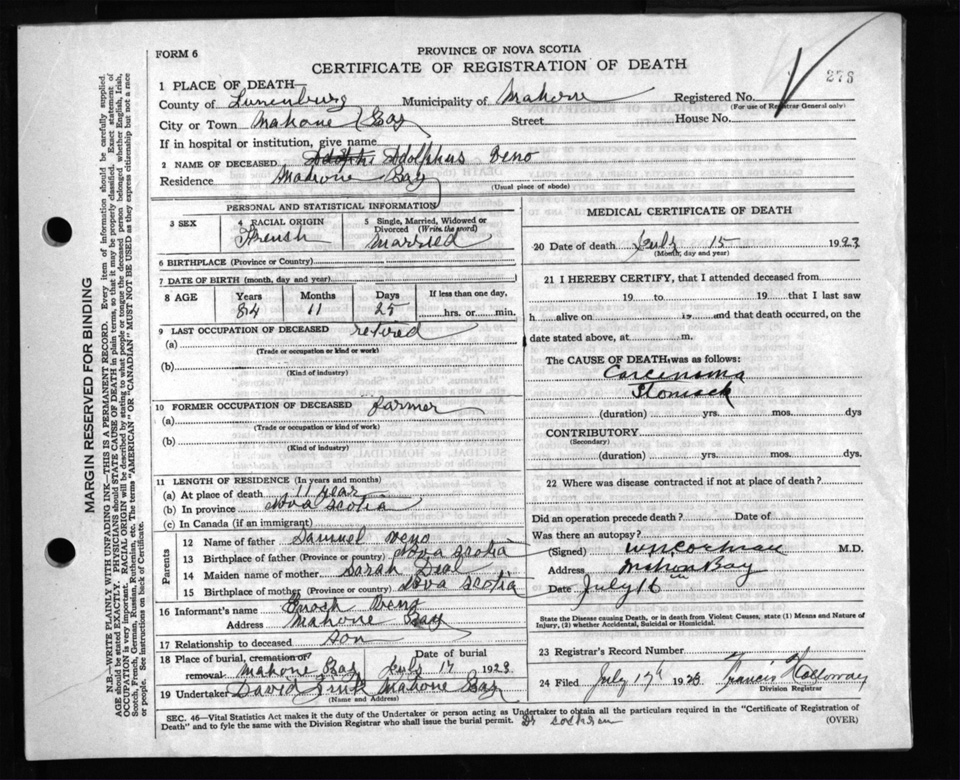 FORM 6
PROVINCE OF NOVA SCOTIA
CERTIFICATE OF REGISTRATION OF DEATH
276
1 PLACE OF DEATH
County of Lunenburg Municipality of Mahone Registered No.
(For use of Registrar General only)
City or Town Mahone Bay Street House No.
If in hospital or institution, give name
2 NAME OF DECEASED Adolphus Veno
Residence Mahone Bay
(Usual place of abode)
PERSONAL AND STATISTICAL INFORMATION
3 SEX
4 RACIAL ORIGIN
French
5 Single, Married, Widowed or Divorced (Write the word)
Married
6 BIRTHPLACE (Province or Country)
7 DATE OF BIRTH (month, day and year)
8 AGE Years Months Days If less than one day,
84 11 25 hrs. or min.
9 LAST OCCUPATION OF DECEASED retired
(a)
(Trade or occupation or kind or work)
(b)
(Kind of industry)
10 FORMER OCCUPATION OF DECEASED farmer
(a)
(Trade or occupation or kind of work)
(b)
(Kind of industry)
11 LENGTH OF RESIDENCE (In years and months)
(a) At place of death 11 year
(b) In province Nova Scotia
(c) In Canada (if an immigrant)
Parents
12 Name of father Samuel Veno
13 Birthplace of father (Province or country) Nova Scotia
14 Maiden name of mother Sarah Deal
15 Birthplace of mother (Province or country) Nova Scotia
16 Informant's name Enoch Veno
Address Mahone Bay
17 Relationship to deceased son
18 Place of burial, cremation or removal Mahone Bay Date of burial July 17 1923
19 Undertaker David Mahone Bay
(Name and Address)
MEDICAL CERTIFICATE OF DEATH
20 Date of death July 15 1923
(Month, day and year)
21 I HEREBY CERTIFY, that I attended deceased from
19 to 19 that I last saw
h alive on 19 and that death occurred, on the
date stated above, at m.
The CAUSE OF DEATH was as follows:
Carcinoma
Stomach
(duration) yrs. mos. dys
CONTRIBUTORY
(Secondary)
(duration) yrs. mos. dys.
22 Where was disease contracted if not at place of death?
Did an operation precede death? Date of
Was there an autopsy?
(Signed) Cochran M.D.
Address Mahone Bay
Date July 16th
State the Disease causing Death, or in death from Violent Causes, state (1) Means and Nature of Injury, (2) whether Accidental, Suicidal or Homicidal.
23 Registrar's Record Number
24 Filed July 17th 1923 Francis Holloway
Division Registrar
SEC. 46—Vital Statistics Act makes it the duty of the Undertaker or person acting as Undertaker to obtain all the particulars required in the "Certificate of Registration of
Death" and to fyle the same with the Division Registrar who shall issue the burial permit. Dr Cochran (OVER)
MARGIN RESERVED FOR BINDING
N.B.—WRITE PLAINLY WITH UNFADING INK—THIS IS A PERMANENT RECORD. Every item of information should be carefully supplied.
AGE should be stated EXACTLY. PHYSICIANS should STATE CAUSE OF DEATH in plain terms, so that it may be properly classified. Exact statement of
OCCUPATION is very important. RACIAL ORIGIN will be described by stating to what people or tongue the deceased person belonged whether English, Irish,
Scotch, French, German, Russian, Ruthenian, etc. The terms "AMERICAN" OR "CANADIAN" MUST NOT BE USED as they express citizenship but not a race
or people. See instructions on back of Certificate.